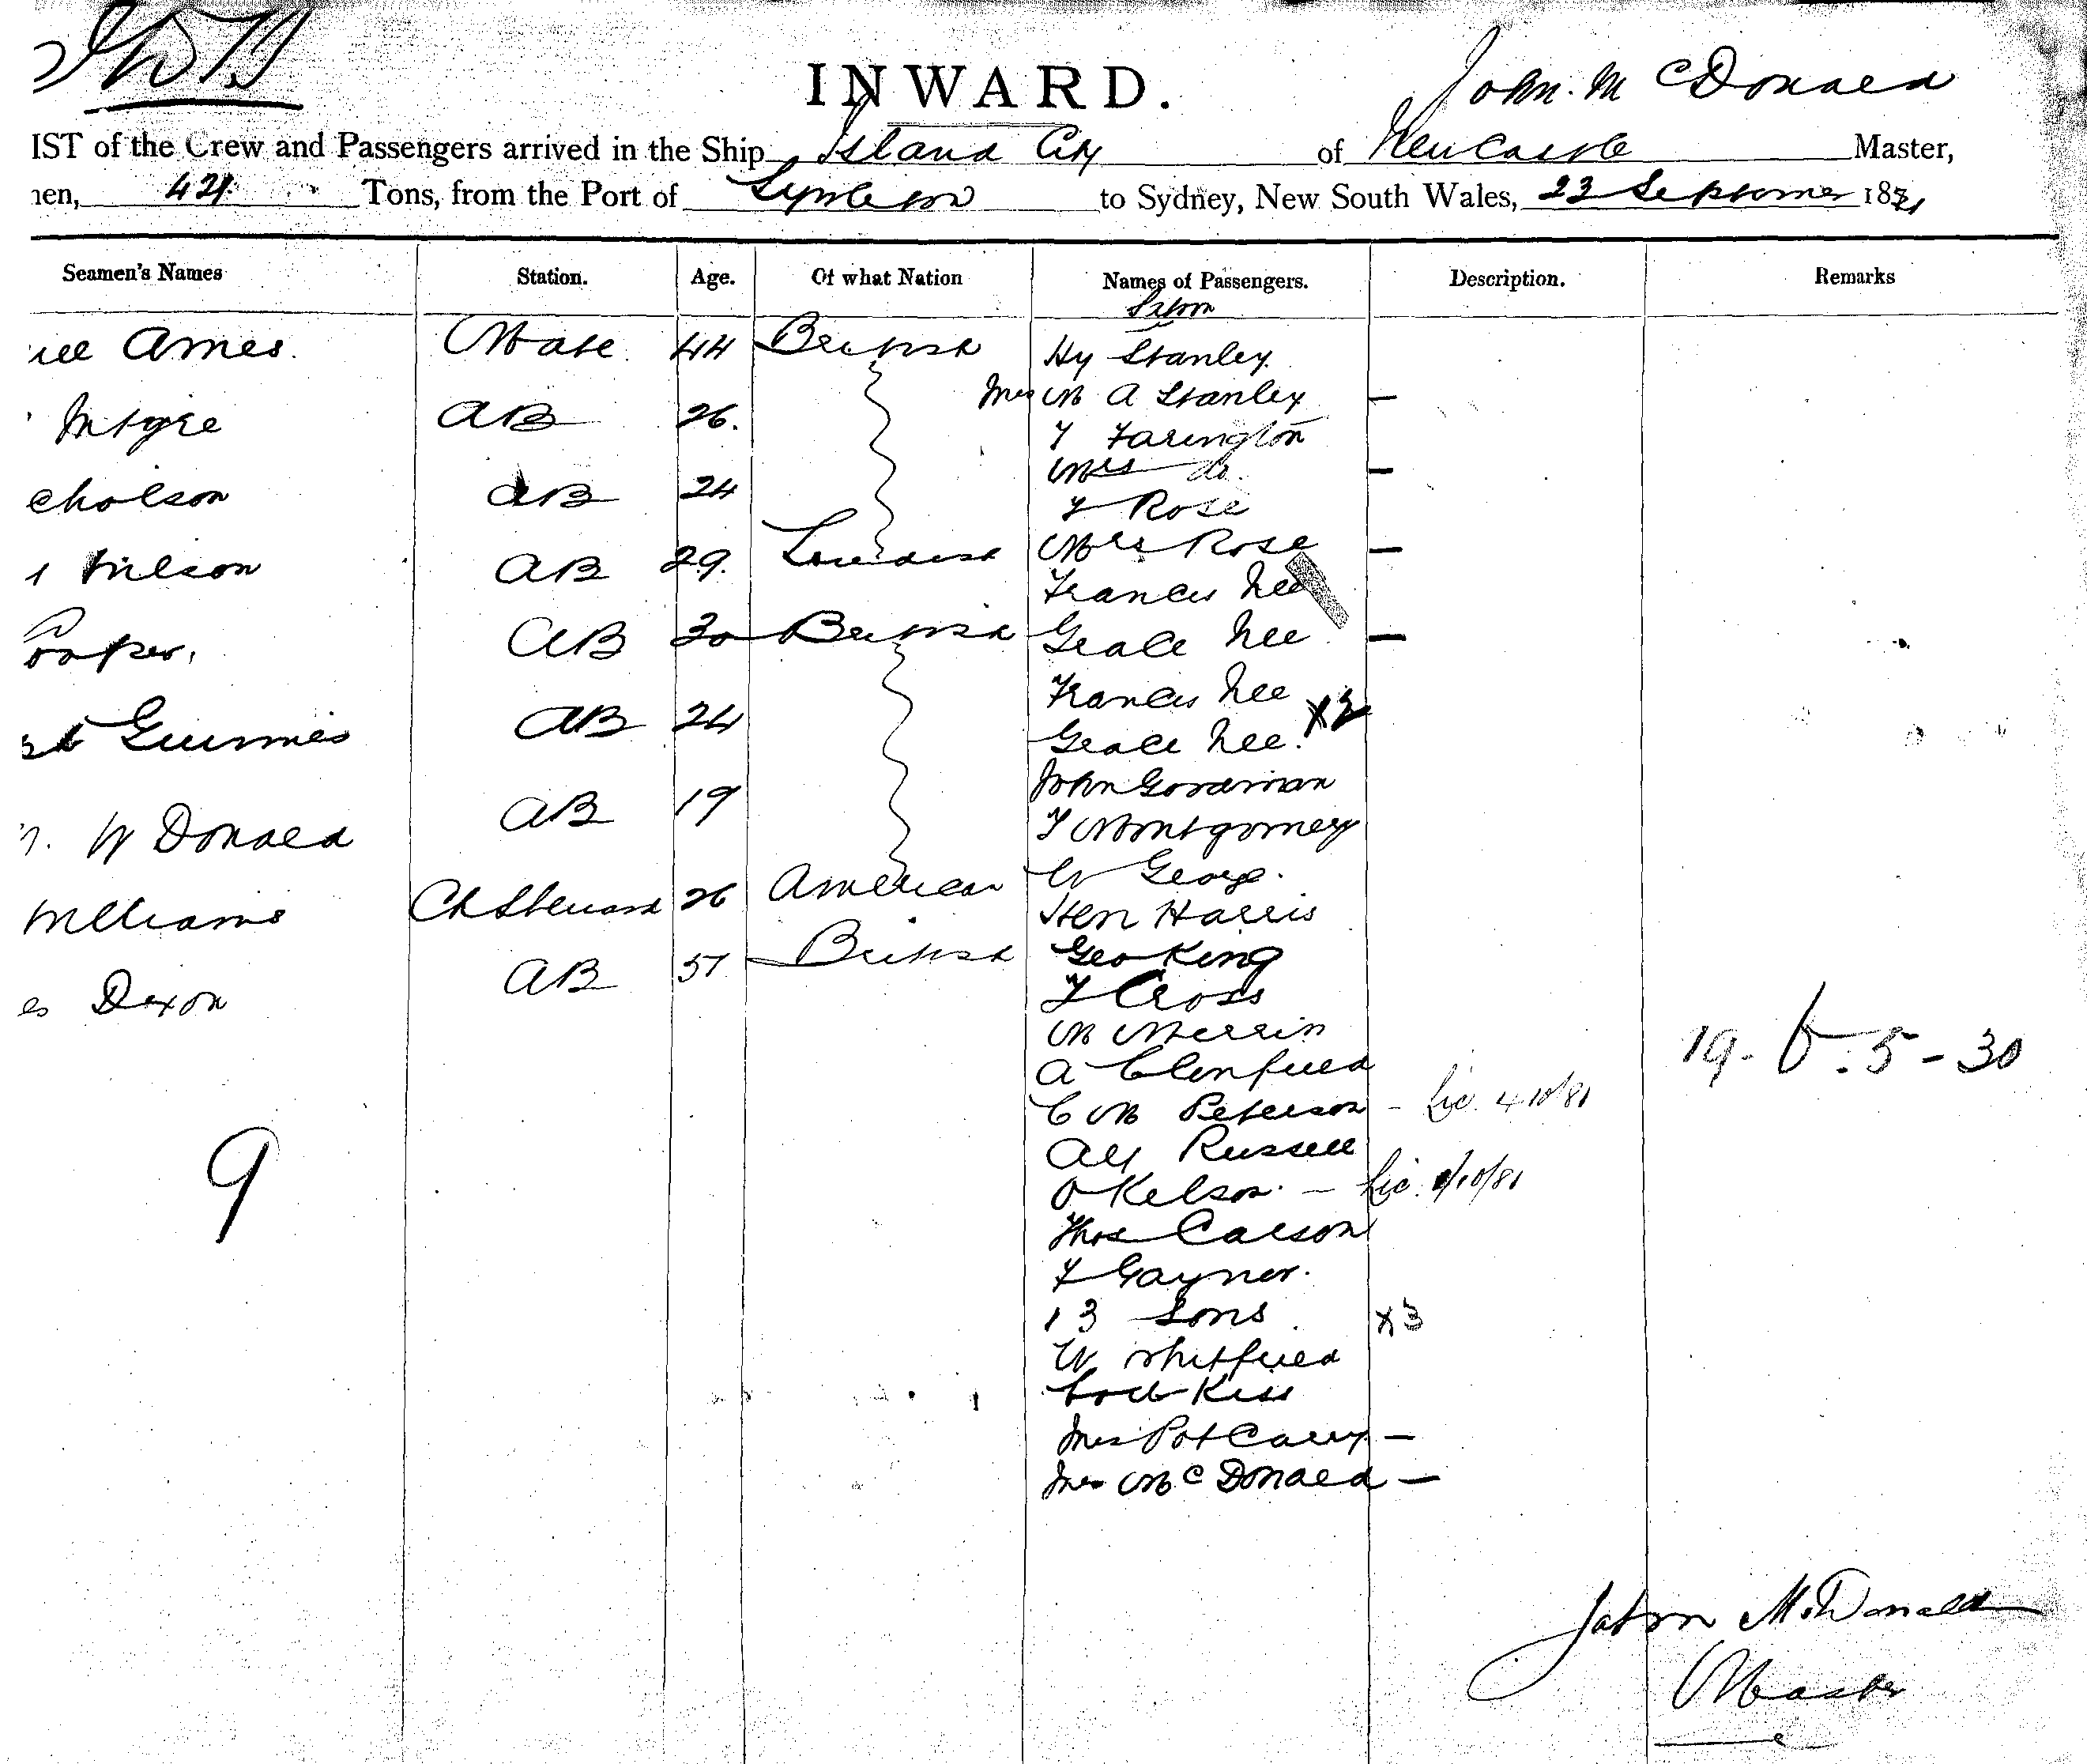 INWARD.
John McDonald
IST of the Crew and Passengers arrived in the Ship Island City of Newcastle Master,
nen, 421 Tons, from the Port of Lyttleton to Sydney, New South Wales, 23 September 1881
Seamen's Names Station. Age. Of what Nation Names of Passengers. Description. Remarks
Saloon
Ames. Mate. 44 British Hy Stanley.
Mrs M A Stanley —
McIntyre AB 26. T Farington
Mrs do. —
cholson AB 24 T Rose
Wilson AB 29. Mrs Rose —
Frances Nee
Cooper. AB 30 British Grace Nee —
Frances Nee
AB 24 Grace Nee. X2
John Goodman
W Donald AB 19 T Montgomery
W George.
Williams Ch Steward 26 American Hen Harris
British Geo King
es Dixon AB 51 T Cross
M Merrin
A Clenfield
C M Peterson – Lic. 4/10/81
19. 6. 5 – 30
Alf Russell
9
O Kelson. – Lic. /10/81
Thos Carson
T Gaynor.
13 Sons. X3
W Shiffield
Kiss
Mrs Pot Carry —
Mrs McDonald —
John McDonald
Master